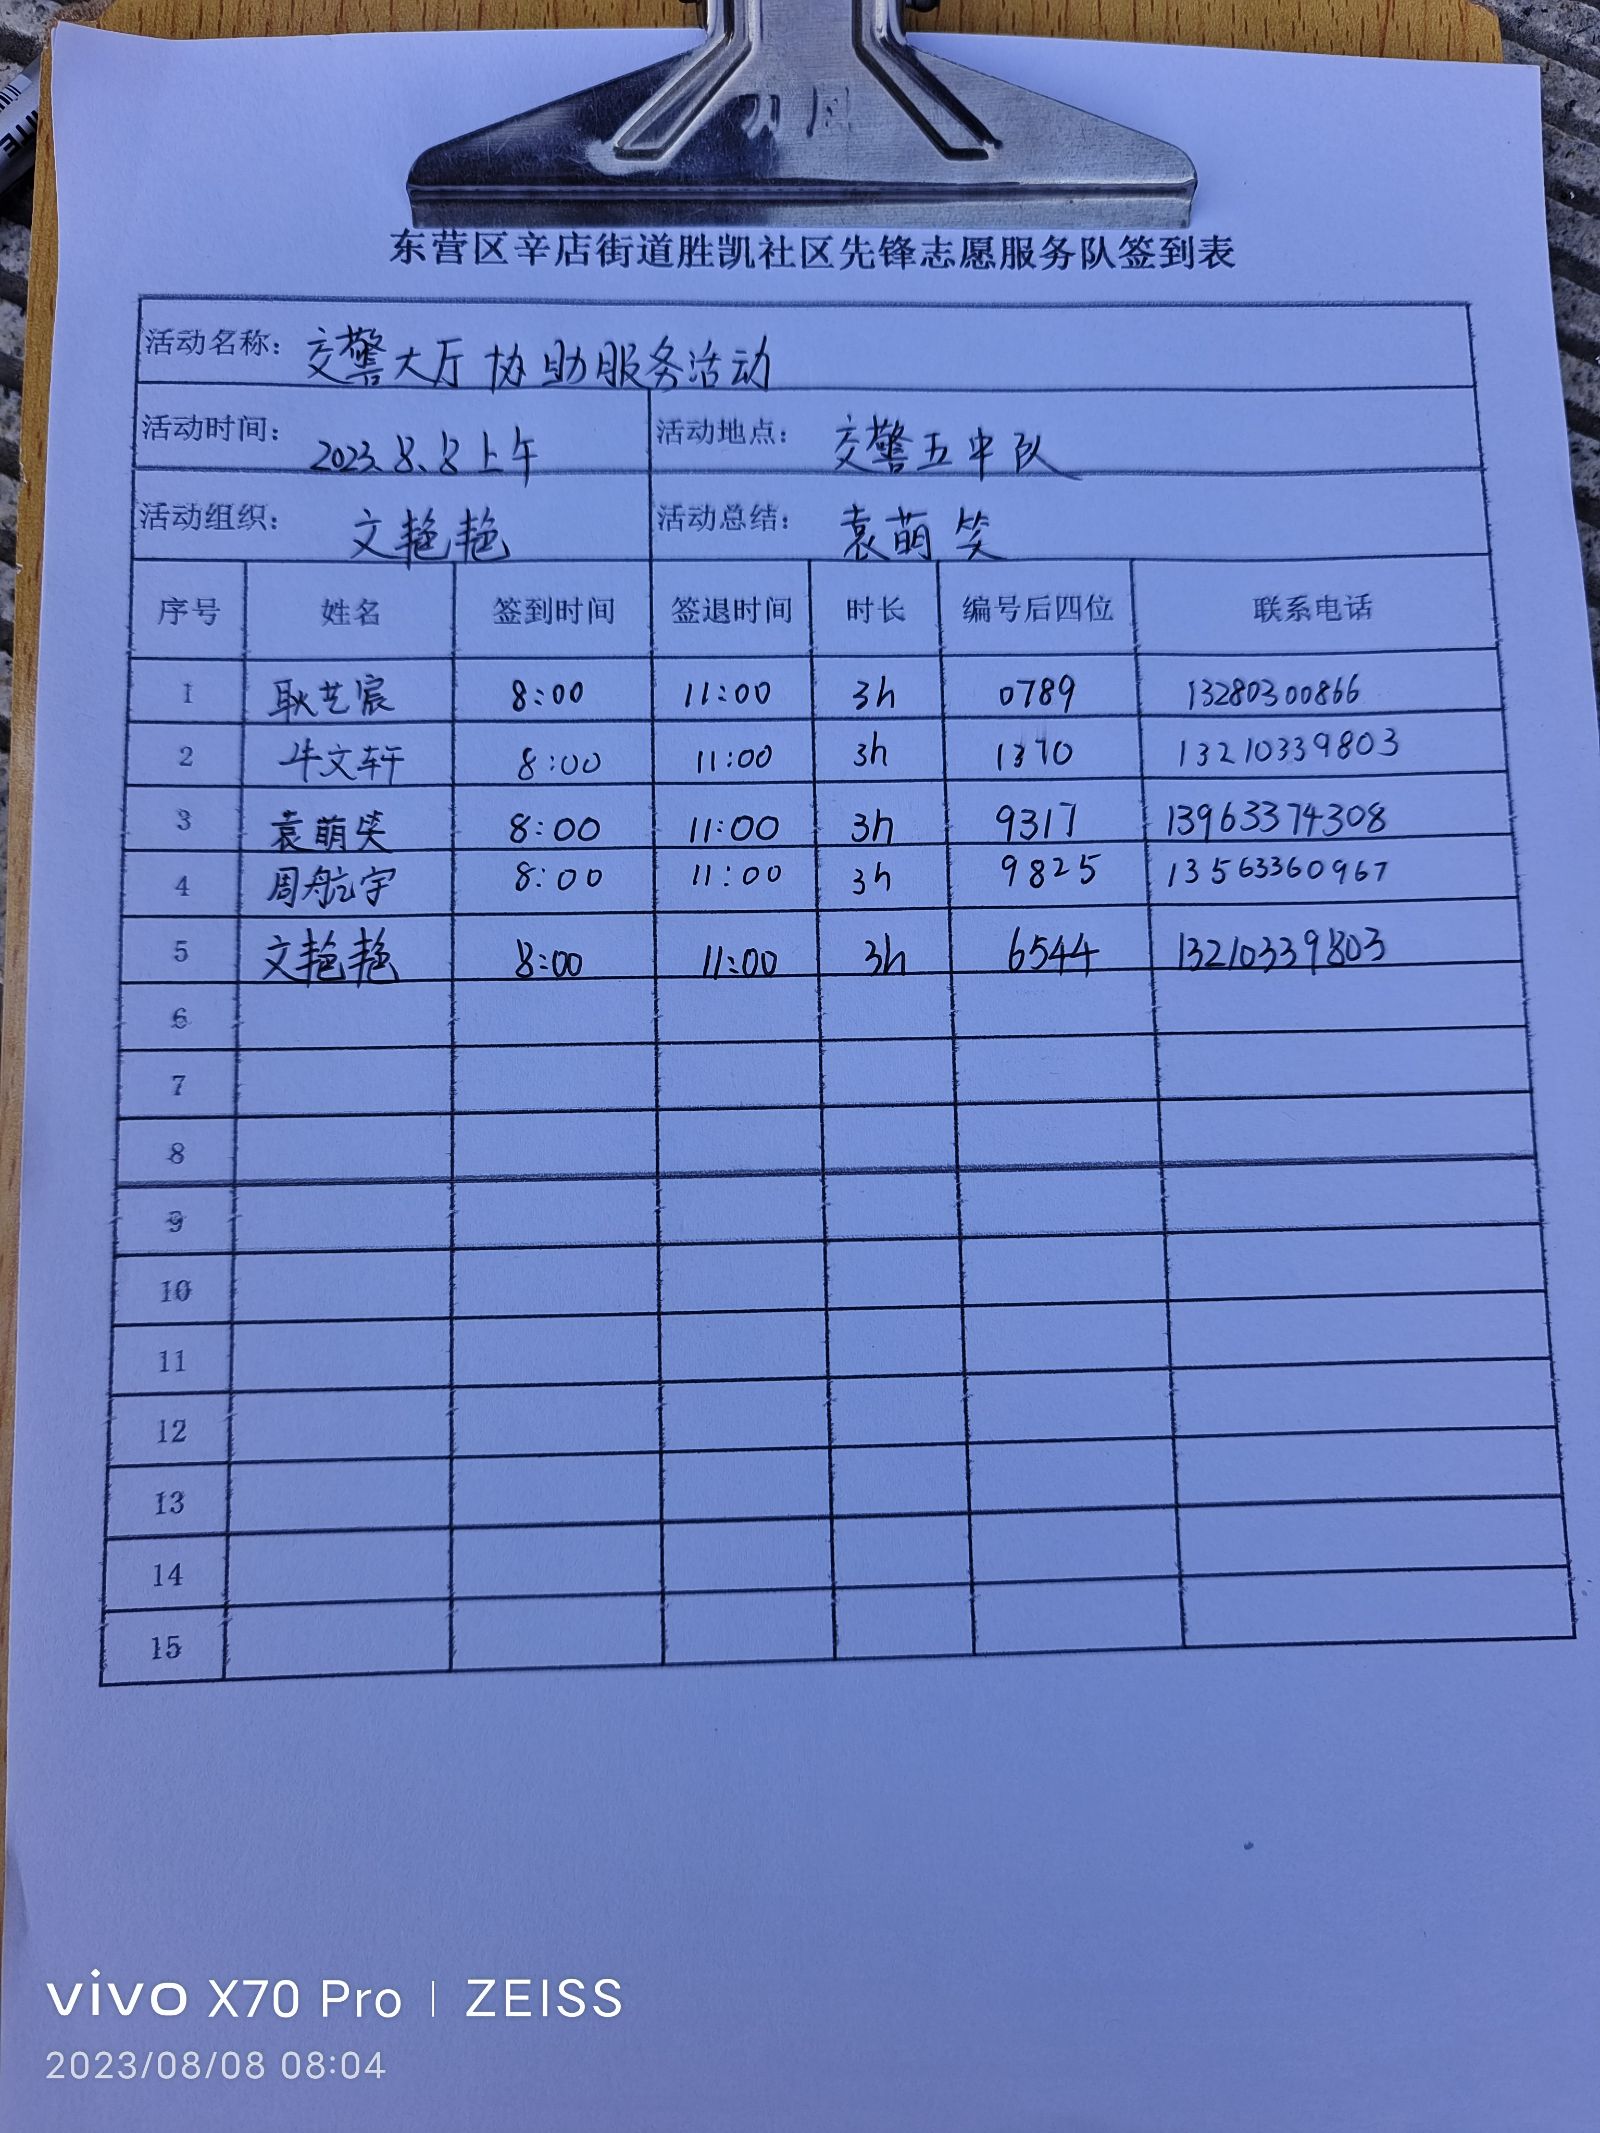 东营区辛店街道胜凯社区先锋志愿服务队签到表
活动名称： 交警大厅协助服务活动
活动时间： 2023.8.8上午 活动地点： 交警五中队
活动组织： 文艳艳 活动总结： 袁萌笑
序号 姓名 签到时间 签退时间 时长 编号后四位 联系电话
1 耿艺宸 8:00 11:00 3h 0789 13280300866
2 牛文轩 8:00 11:00 3h 1370 13210339803
3 袁萌笑 8:00 11:00 3h 9317 13963374308
4 周航宇 8:00 11:00 3h 9825 13563360967
5 文艳艳 8:00 11:00 3h 6544 13210339803
6
7
8
9
10
11
12
13
14
15
vivo X70 Pro | ZEISS
2023/08/08 08:04